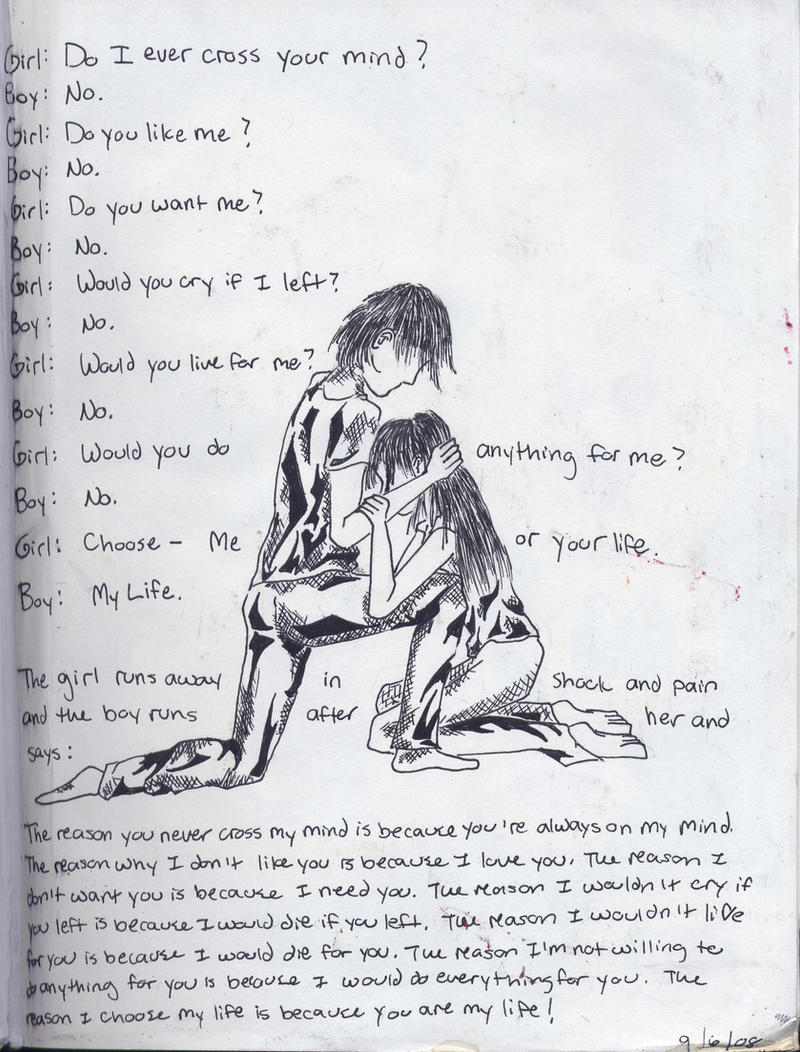 Girl: Do I ever cross your mind?
Boy: No.
Girl: Do you like me?
Boy: No.
Girl: Do you want me?
Boy: No.
Girl: Would you cry if I left?
Boy: No.
Girl: Would you live for me?
Boy: No.
Girl: Would you do anything for me?
Boy: No.
Girl: Choose - Me or your life.
Boy: My Life.
The girl runs away in shock and pain
and the boy runs after her and
says:
The reason you never cross my mind is because you're always on my mind.
The reason why I don't like you is because I love you. The reason I
don't want you is because I need you. The reason I wouldn't cry if
you left is because I would die if you left. The reason I wouldn't live
for you is because I would die for you. The reason I'm not willing to
do anything for you is because I would do everything for you. The
reason I choose my life is because you are my life!
9/6/08